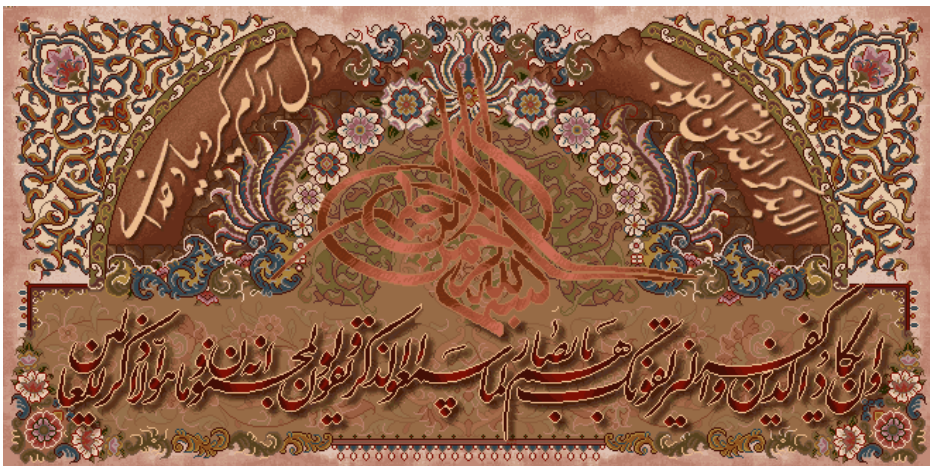 الا بذکر الله تطمئن القلوب
دل آرام گیرد بیاد خدا
بسم الله الرحمن الرحیم
وان یکاد الذین کفروا لیزلقونک بابصارهم لما سمعوا الذکر و یقولون انه لمجنون و ما هو الا ذکر للعالمین